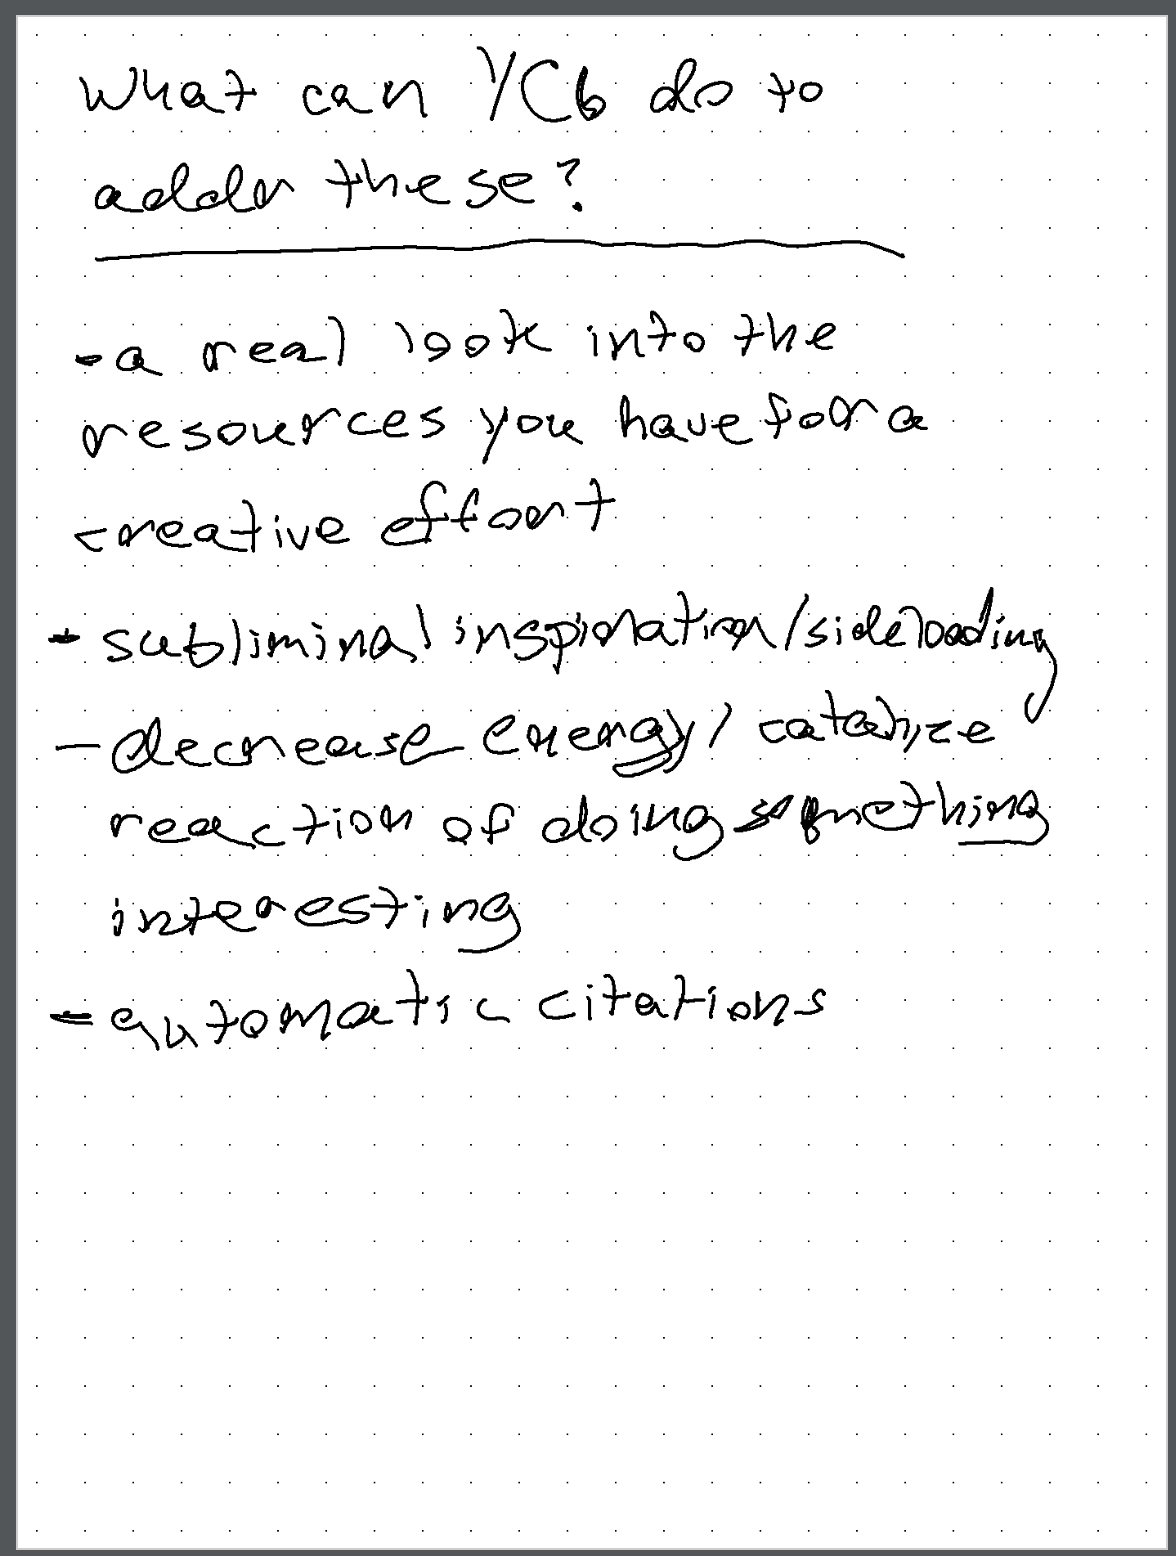 What can YCb do to
adddr these?
- a real look into the
resources you have for a
creative effort
- subliminal inspiration/sideloading
- decrease energy/catalyze
reaction of doing something
interesting
- automatic citations